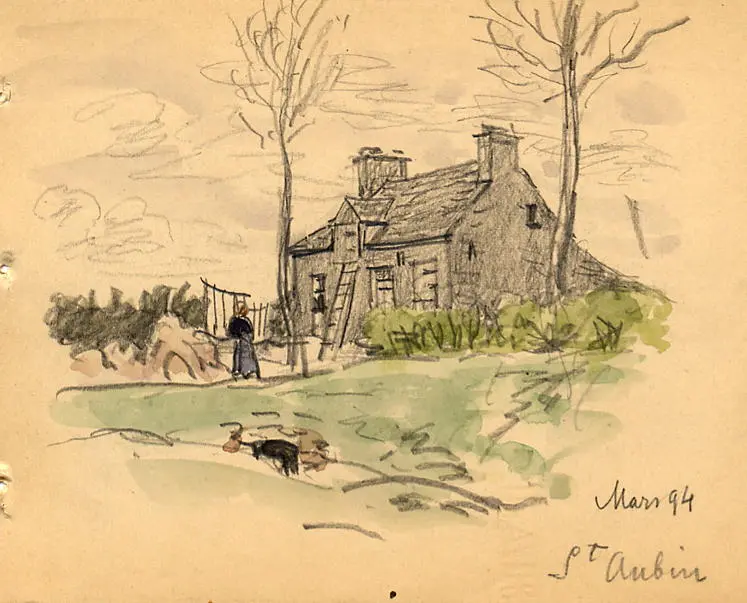 Mars 94
St Aubin